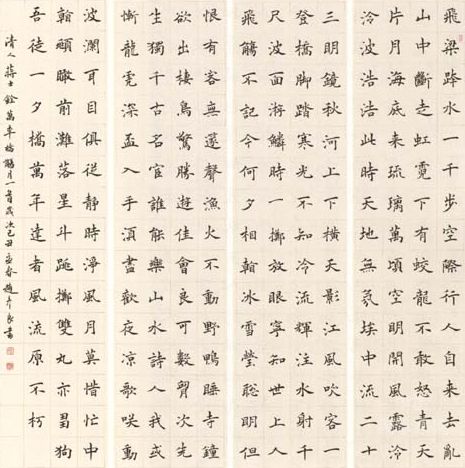 飛梁跨水一千步空際行人自來去亂
山中斷走虹霓下有蛟龍不敢怒青天
片月海底來琉璃萬頃空明開風露泠
泠波浩浩此時天地無氛埃中流二十
三明鏡秋河上下橫天影江風吹客一
登橋腳踏寒光不知冷流輝注水射千
尺波面將鱗時一擲放眼寧知世上人
飛觴不記今何夕相翰冰雪瑩聰明但
恨有客無聲漁火不動野鴨睡寺鐘
欲出棲鳥驚勝遊佳會良可數賢次先
生獨千古名官誰能樂山水詩人我或
慚龍霓深盃入手須盡歡夜涼歌咲動
波瀾耳目俱從靜時淨風月莫惜忙中
翰瞰前灘落星斗跳擲雙丸亦芻狗
吾徒一夕橋萬年達者風流原不朽
清人蔣士銓萬年橋觴月一首歲次己丑孟春趙良書